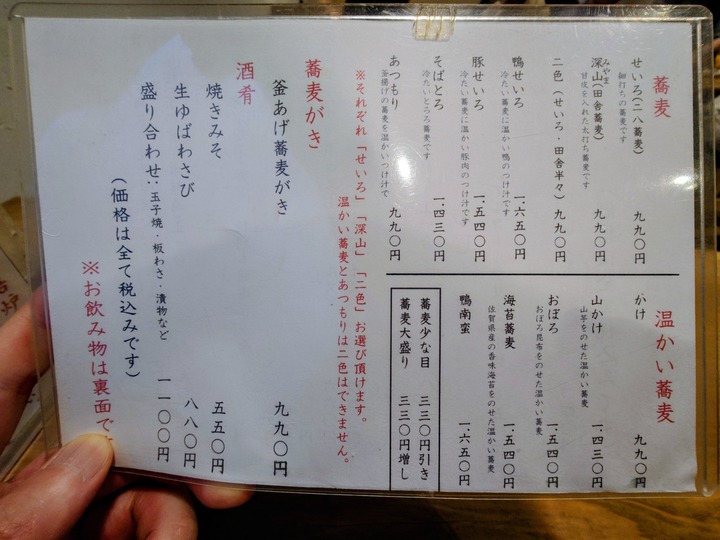 蕎麦
せいろ(二八蕎麦) 九九〇円
細打ちの蕎麦です
みやま
深山(田舎蕎麦) 九九〇円
甘皮を入れた太打ち蕎麦です
二色(せいろ・田舎半々) 九九〇円
鴨せいろ 一、六五〇円
冷たい蕎麦に温かい鴨のつけ汁です
豚せいろ 一、五四〇円
冷たい蕎麦に温かい豚肉のつけ汁です
そばとろ 一、四三〇円
冷たいとろろ蕎麦です
あつもり 九九〇円
釜揚げの蕎麦を温かいつけ汁で
温かい蕎麦
かけ 九九〇円
山かけ 一、四三〇円
山芋をのせた温かい蕎麦
おぼろ 一、五四〇円
おぼろ昆布をのせた温かい蕎麦
海苔蕎麦 一、五四〇円
佐賀県産の香味海苔をのせた温かい蕎麦
鴨南蛮 一、六五〇円
蕎麦少な目 三三〇円引き
蕎麦大盛り 三三〇円増し
※それぞれ「せいろ」「深山」「二色」お選び頂けます。
温かい蕎麦とあつもりは二色はできません。
蕎麦がき
釜あげ蕎麦がき 九九〇円
酒肴
焼きみそ 五五〇円
生ゆばわさび 八八〇円
盛り合わせ:玉子焼・板わさ・漬物など 一一〇〇円
(価格は全て税込みです)
※お飲み物は裏面で